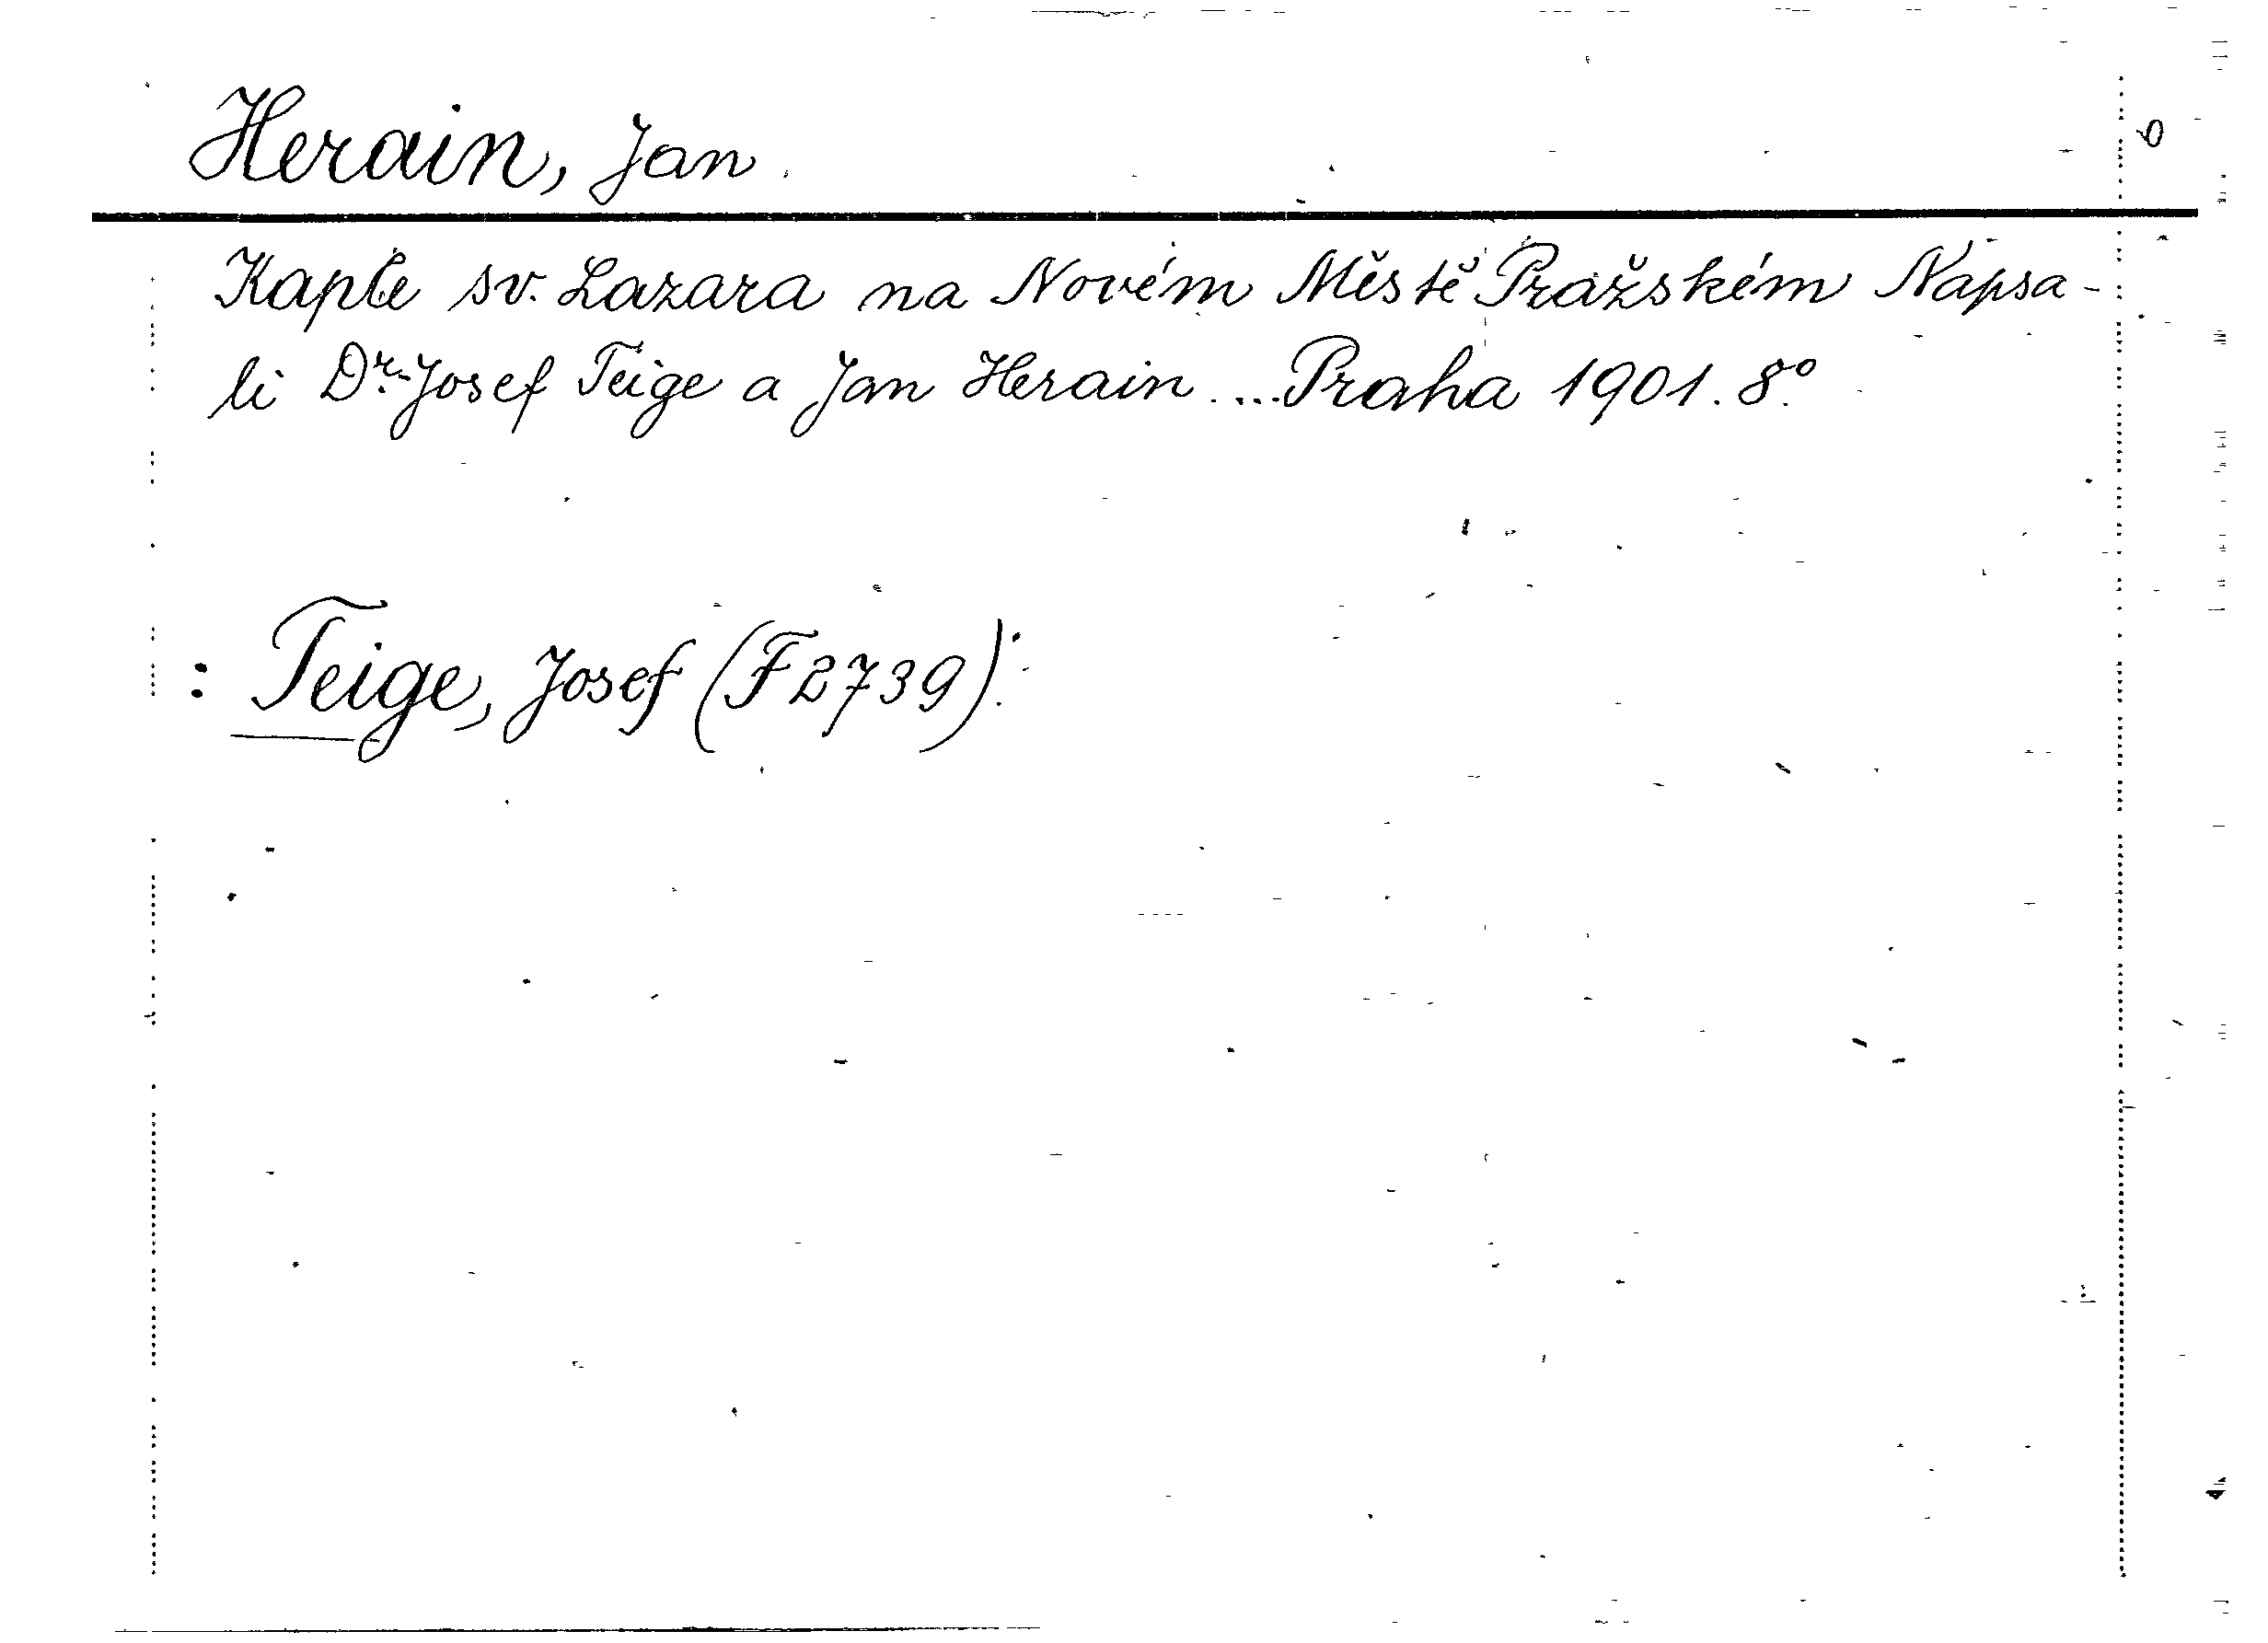 Herain, Jan
Kaple sv. Lazara na Novém Městě Pražském Napsa-
li Dr. Josef Teige a Jan Herain .... Praha 1901. 8°.
: Teige, Josef (F 2739):